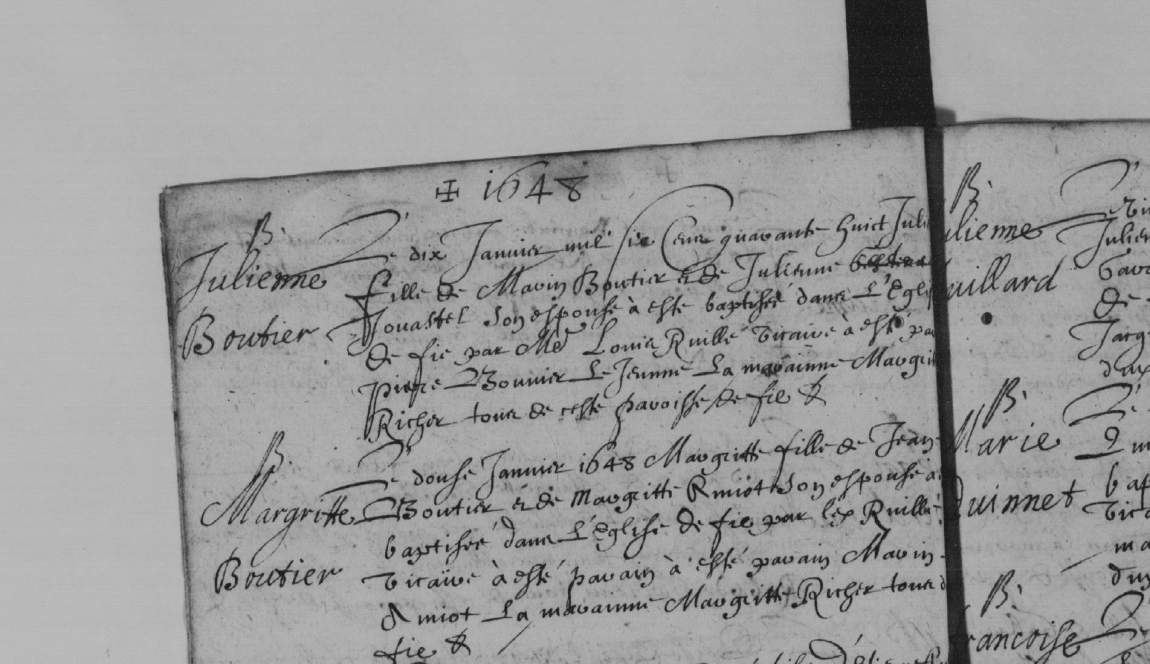 ✠ 1648
B.
Julienne
Boutier
Le dix Janvier mil six Cens quarante huict Juli
fille de Marin Boutier et de Julienne
Jouastel son espouse à esté baptisée dans L'Egli
de fie par Me Louis Ruillé vicaire à esté pa
Pierre Bouvier Le Jeunne La marainne Margri
Richer tous de ceste paroisse de fie &
B.
Margritte
Boutier
Le douse Janvier 1648 Margritte fille de Jean
Boutier et de Margritte Amiot son espouse a
baptisée dans L'Eglise de fie par led Ruillé
vicaire à esté parain à esté parain Marin
Amiot La marainne Margritte Richer tous d
fie &
B.
ulienne
uillard
B.
Marie
Quinnet
B.
francoise
Le
Julien
de
Jacq